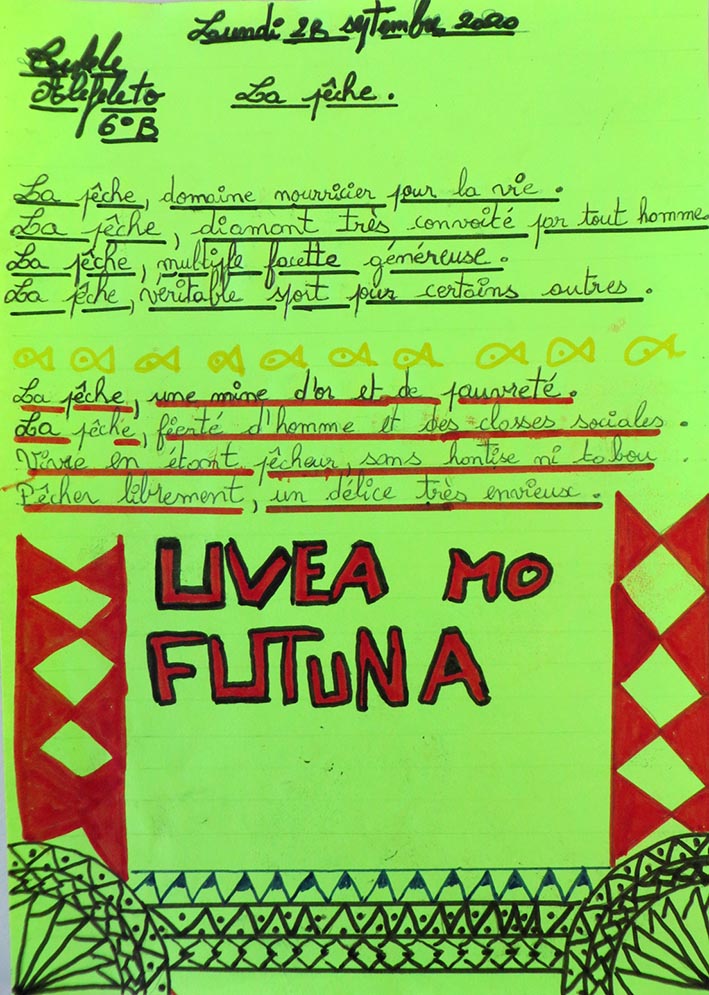 Lundi 28 septembre 2020
Alefeleto
6°B
La pêche.
La pêche, domaine nourricier pour la vie.
La pêche, diamant très convoité par tout homme.
La pêche, multiple facette généreuse.
La pêche, véritable sport pour certains autres.
La pêche, une mine d'or et de pauvreté.
La pêche, fierté d'homme et des classes sociales.
Vivre en étant pêcheur, sans hontise ni tabou.
Pêcher librement, un délice très envieux.
UVEA MO
FUTUNA